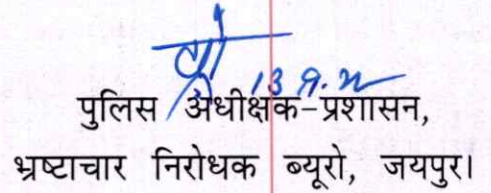 13.9.22
पुलिस अधीक्षक-प्रशासन,
भ्रष्टाचार निरोधक ब्यूरो, जयपुर।